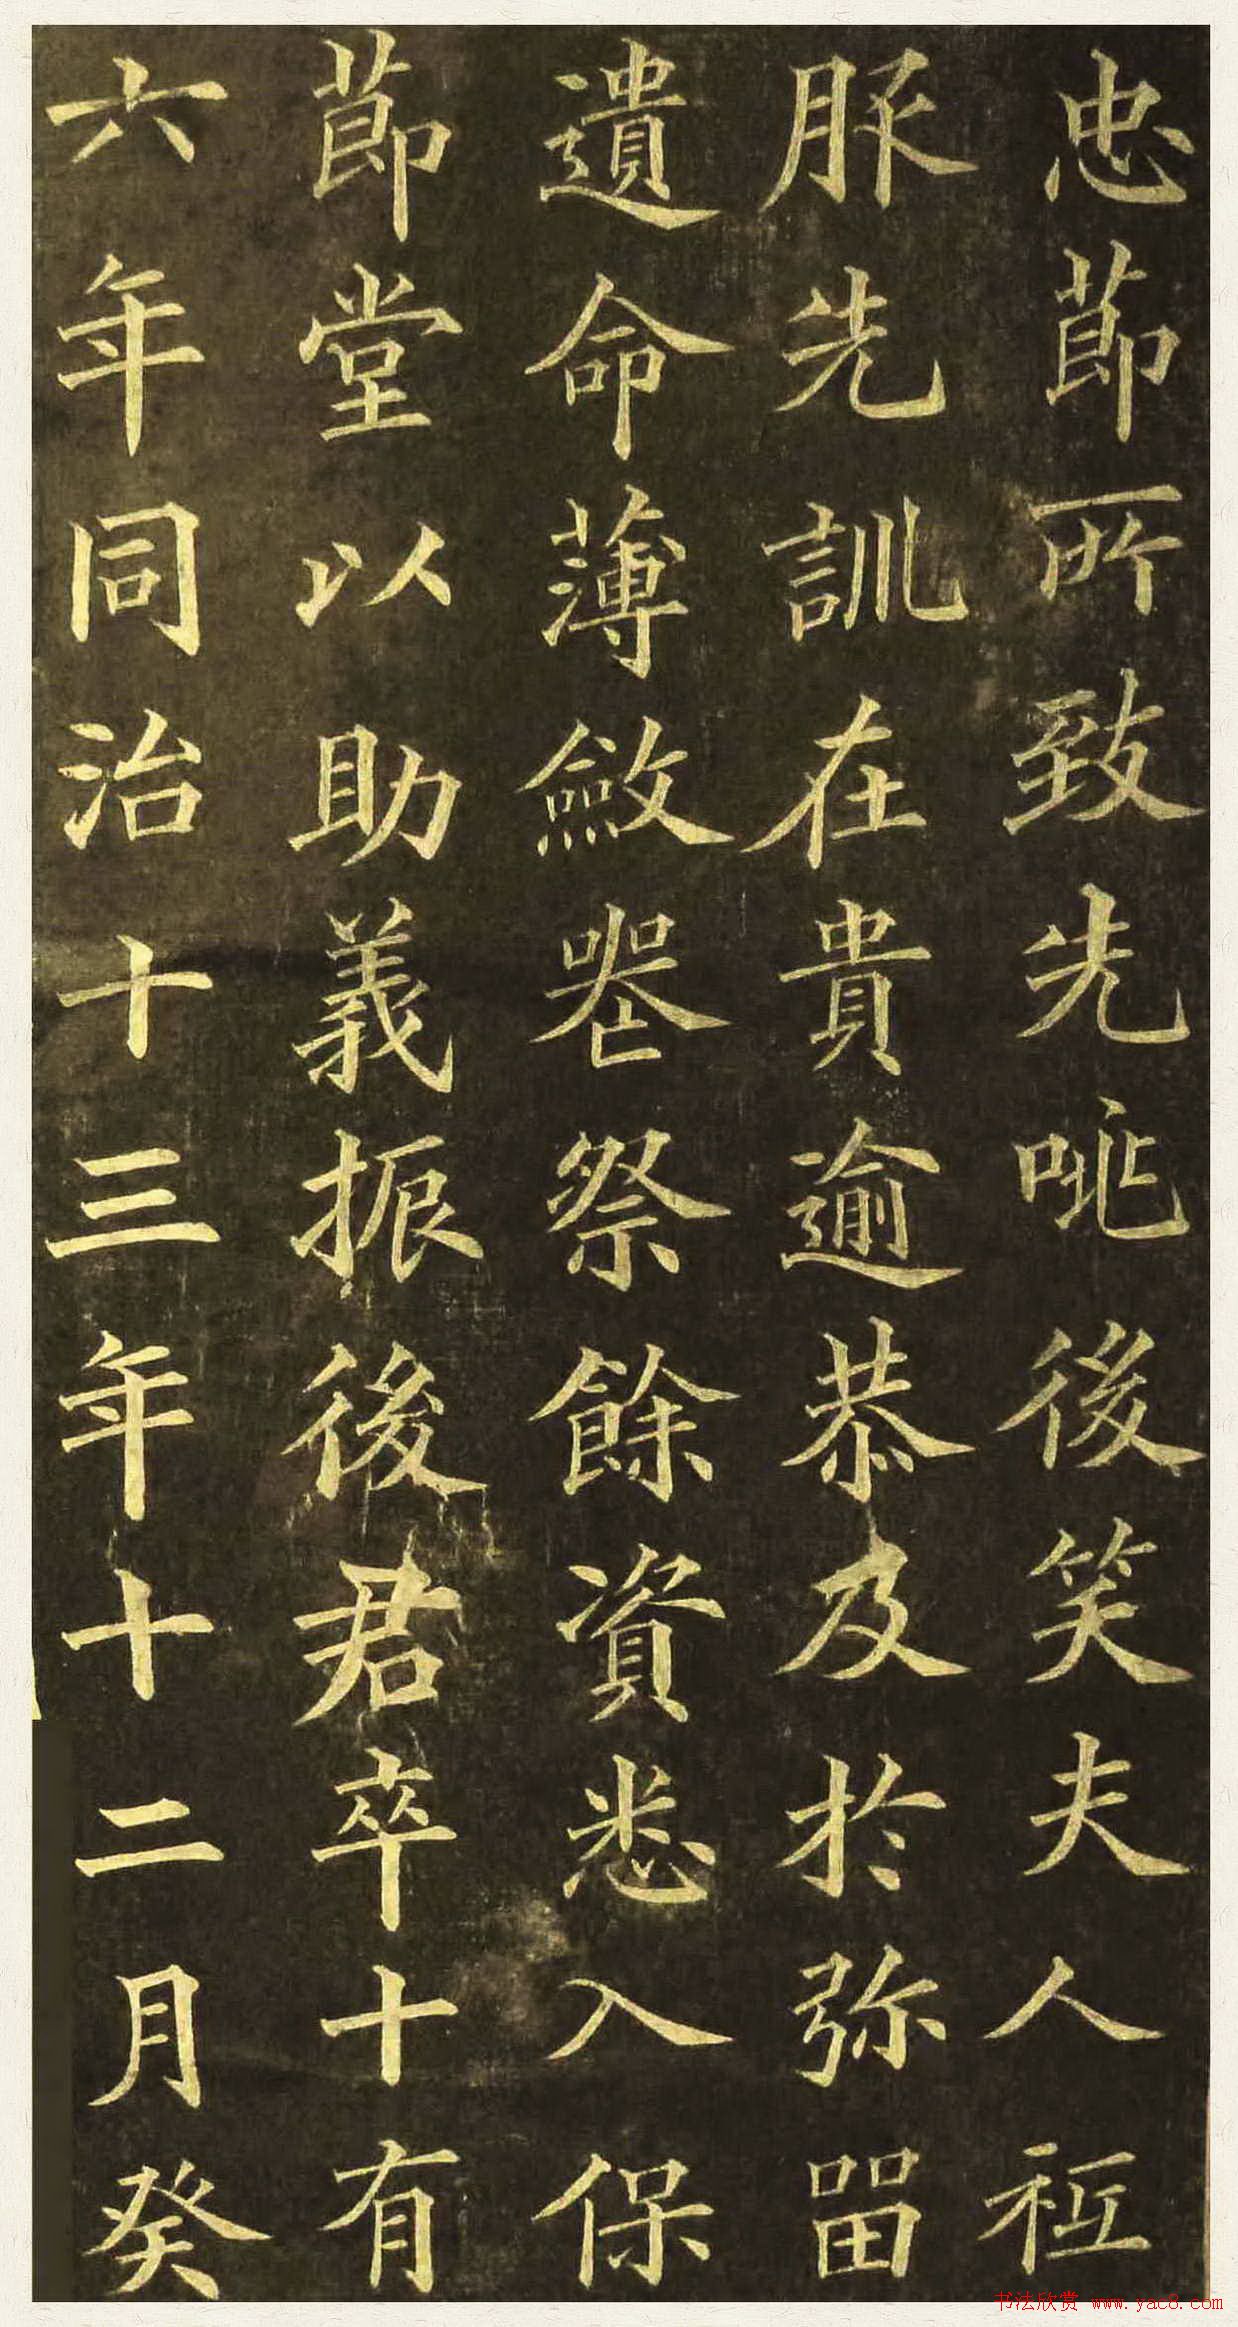 忠節所致先咷後笑夫人祗
服先訓在貴逾恭及於弥留
遺命薄斂罷祭餘資悉入保
節堂以助義振後君卒十有
六年同治十三年十二月癸
书法欣赏 www.yac8.com